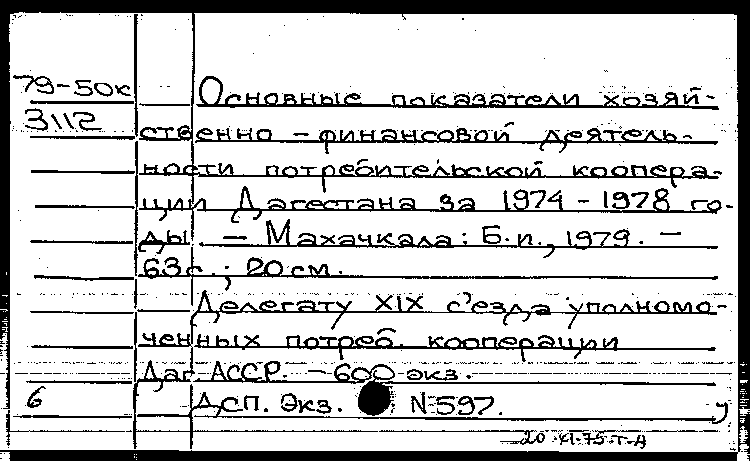 79-50к
3112
Основные показатели хозяй-
ственно - финансовой деятель-
ности потребительской коопера-
ции Дагестана за 1974 - 1978 го-
ды. — Махачкала: Б.и., 1979. —
63с.; 20 см.
Делегату XIX с'езда уполномо-
ченных потреб. кооперации
Даг. АССР. — 600 экз.
6 ДСП. Экз. N 597. у